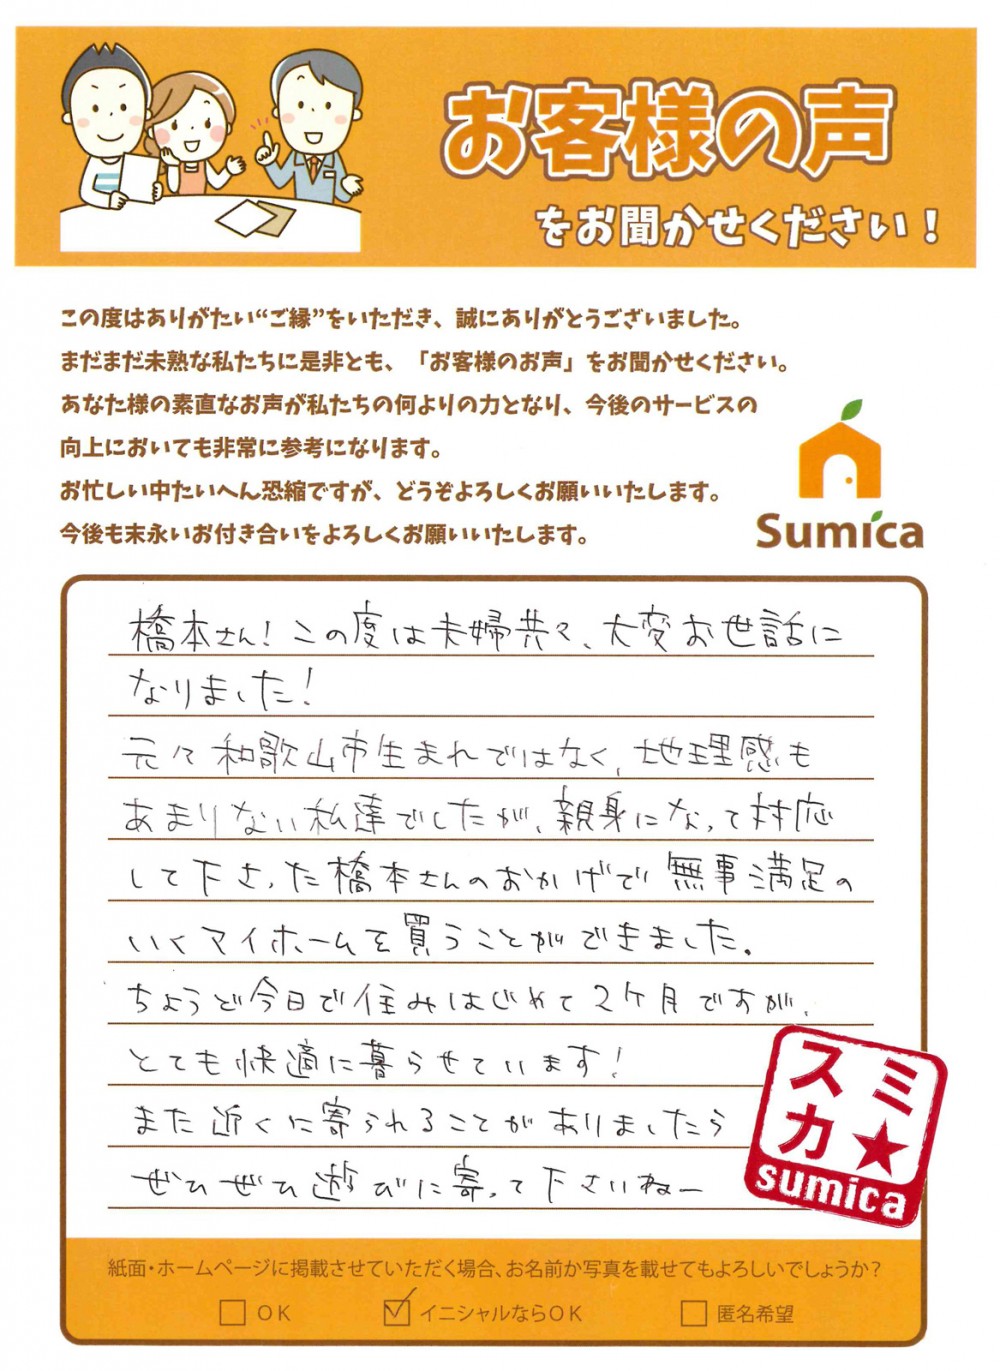 お客様の声
をお聞かせください！
この度はありがたい“ご縁”をいただき、誠にありがとうございました。
まだまだ未熟な私たちに是非とも、「お客様のお声」をお聞かせください。
あなた様の素直なお声が私たちの何よりの力となり、今後のサービスの
向上においても非常に参考になります。
お忙しい中たいへん恐縮ですが、どうぞよろしくお願いいたします。
今後も末永いお付き合いをよろしくお願いいたします。
Sumica
橋本さん！この度は夫婦共々、大変お世話に
なりました！
元々和歌山市生まれではなく、地理感も
あまりない私達でしたが、親身になって対応
して下さった橋本さんのおかげで無事満足の
いくマイホームを買うことができました。
ちょうど今日で住みはじめて2ヶ月ですが、
とても快適に暮らせています！
また近くに寄られることがありましたら
ぜひぜひ遊びに寄って下さいねー
スミ
カ★
sumica
紙面・ホームページに掲載させていただく場合、お名前か写真を載せてもよろしいでしょうか？
□ OK ☑ イニシャルならOK □ 匿名希望